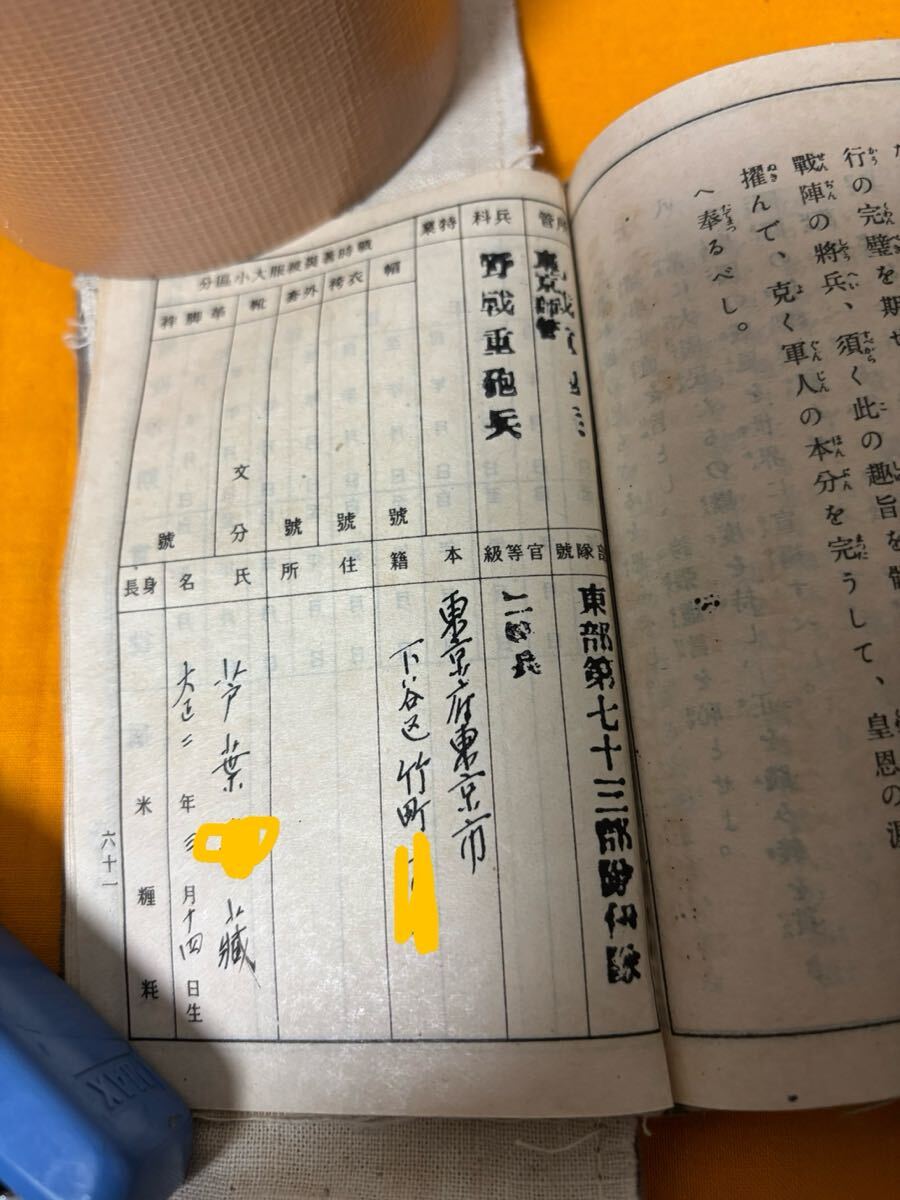 行の完璧を期せ
戰陣の將兵、須く此の趣旨を
擢んで、克く軍人の本分を完うして、皇恩の
へ奉るべし。
管
東京師管
科兵
野戰重砲兵
業特
分區小大服被與貸時戰
帽
號
袴衣
號
套外
號
靴
文
分
革脚絆
號
隊號
東部第七十三部隊
級等官
二等兵
籍本
東京府東京市
下谷区竹町
所住
名氏
芦葉
藏
大正二年三月十四日生
長身
米
糎
粍
六十一
MAX